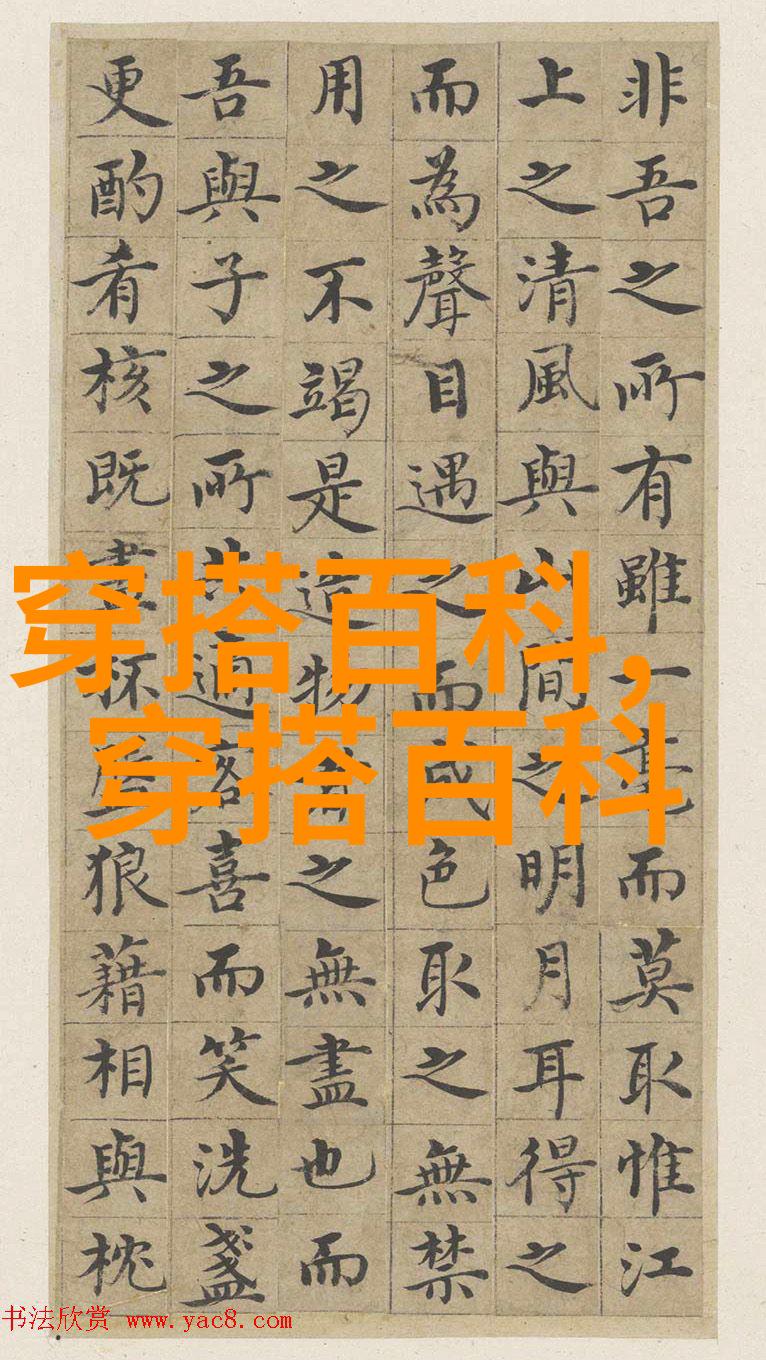 非吾之所有雖一毫而莫取惟江
上之清風與山間之明月耳得之
而為聲目遇之而成色取之無禁
用之不竭是造物者之無盡也而
吾與子之所共適客喜而笑洗盞
更酌肴核既盡杯盤狼藉相與枕
穿搭百科,
穿搭百科
书法欣赏 www.yac8.com